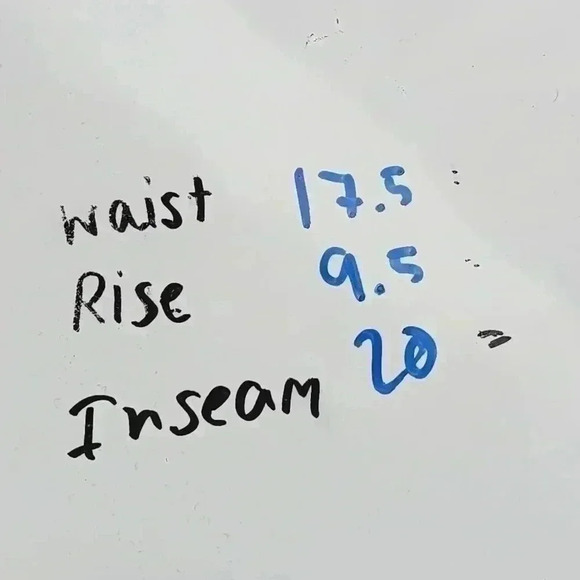 waist 17.5
Rise 9.5
Inseam 20